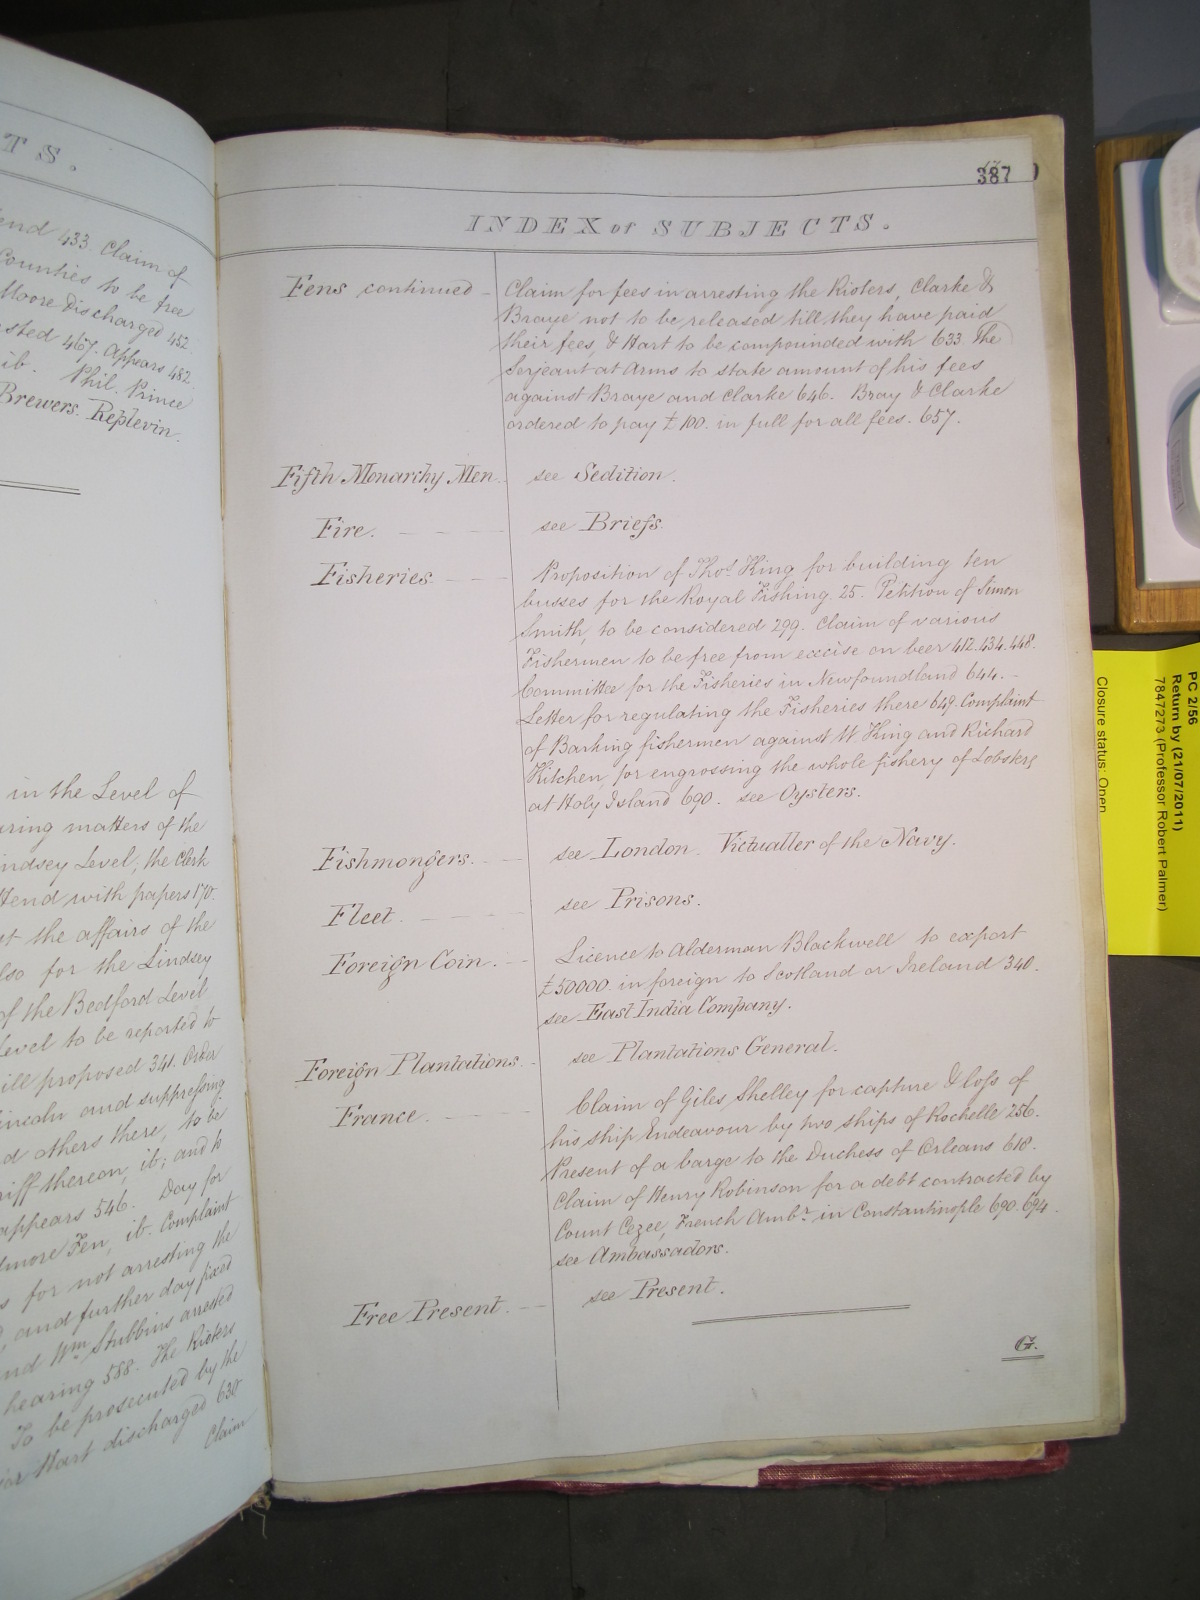 TS.
end 433. Claim of
Counties to be free
Moore Discharged 452.
sted 467. Appears 482.
ib. Phil. Prince
Brewers. Replevin.
in the Level of
uring matters of the
indsey Level; the Clerk
ttend with papers 170.
et the affairs of the
lso for the Lindsey
of the Bedford Level
Level to be reported to
ill proposed 341. Order
incoln and suppressing
d others there, to be
riff thereon, ib; and to
appears 546. Day for
more Fen, ib. Complaint
s for not arresting the
and further day fixed
nd Wm Stubbins arrested
hearing 588. The Rioters
To be prosecuted by the
or Hart discharged 630
Claim
387
INDEX of SUBJECTS.
Fens continued - Claim for fees in arresting the Rioters, Clarke &
Braye not to be released till they have paid
their fees, & Hart to be compounded with 633 The
Serjeant at Arms to state amount of his fees
against Braye and Clarke 646. Bray & Clarke
ordered to pay £100. in full for all fees. 657.
Fifth Monarchy Men. see Sedition.
Fire. - - - see Briefs.
Fisheries - - - Proposition of Thos. King for building ten
busses for the Royal Fishing. 25. Petition of Simon
Smith, to be considered 299. Claim of various
Fishermen to be free from excise on beer 412. 434. 448.
Committee for the Fisheries in Newfoundland 644. -
Letter for regulating the Fisheries there 649. Complaint
of Barking fishermen against W. King and Richard
Kitchen, for engrossing the whole fishery of Lobsters
at Holy Island 690. see Oysters.
Fishmongers. - - see London. Victualler of the Navy.
Fleet - - - see Prisons.
Foreign Coin. - - Licence to Alderman Blackwell to export
£50000. in foreign to Scotland or Ireland 340.
see East India Company.
Foreign Plantations. - see Plantations General.
France. - - - Claim of Giles Shelley for capture & loss of
his ship Endeavour by two ships of Rochelle 256.
Present of a barge to the Duchess of Orleans 618.
Claim of Henry Robinson for a debt contracted by
Count Cezee, French Ambr. in Constantinople 690. 694.
see Ambassadors.
Free Present. - - see Present.
G.
PC 2/56
Return by (21/07/2011)
7847273 (Professor Robert Palmer)
Closure status: Open